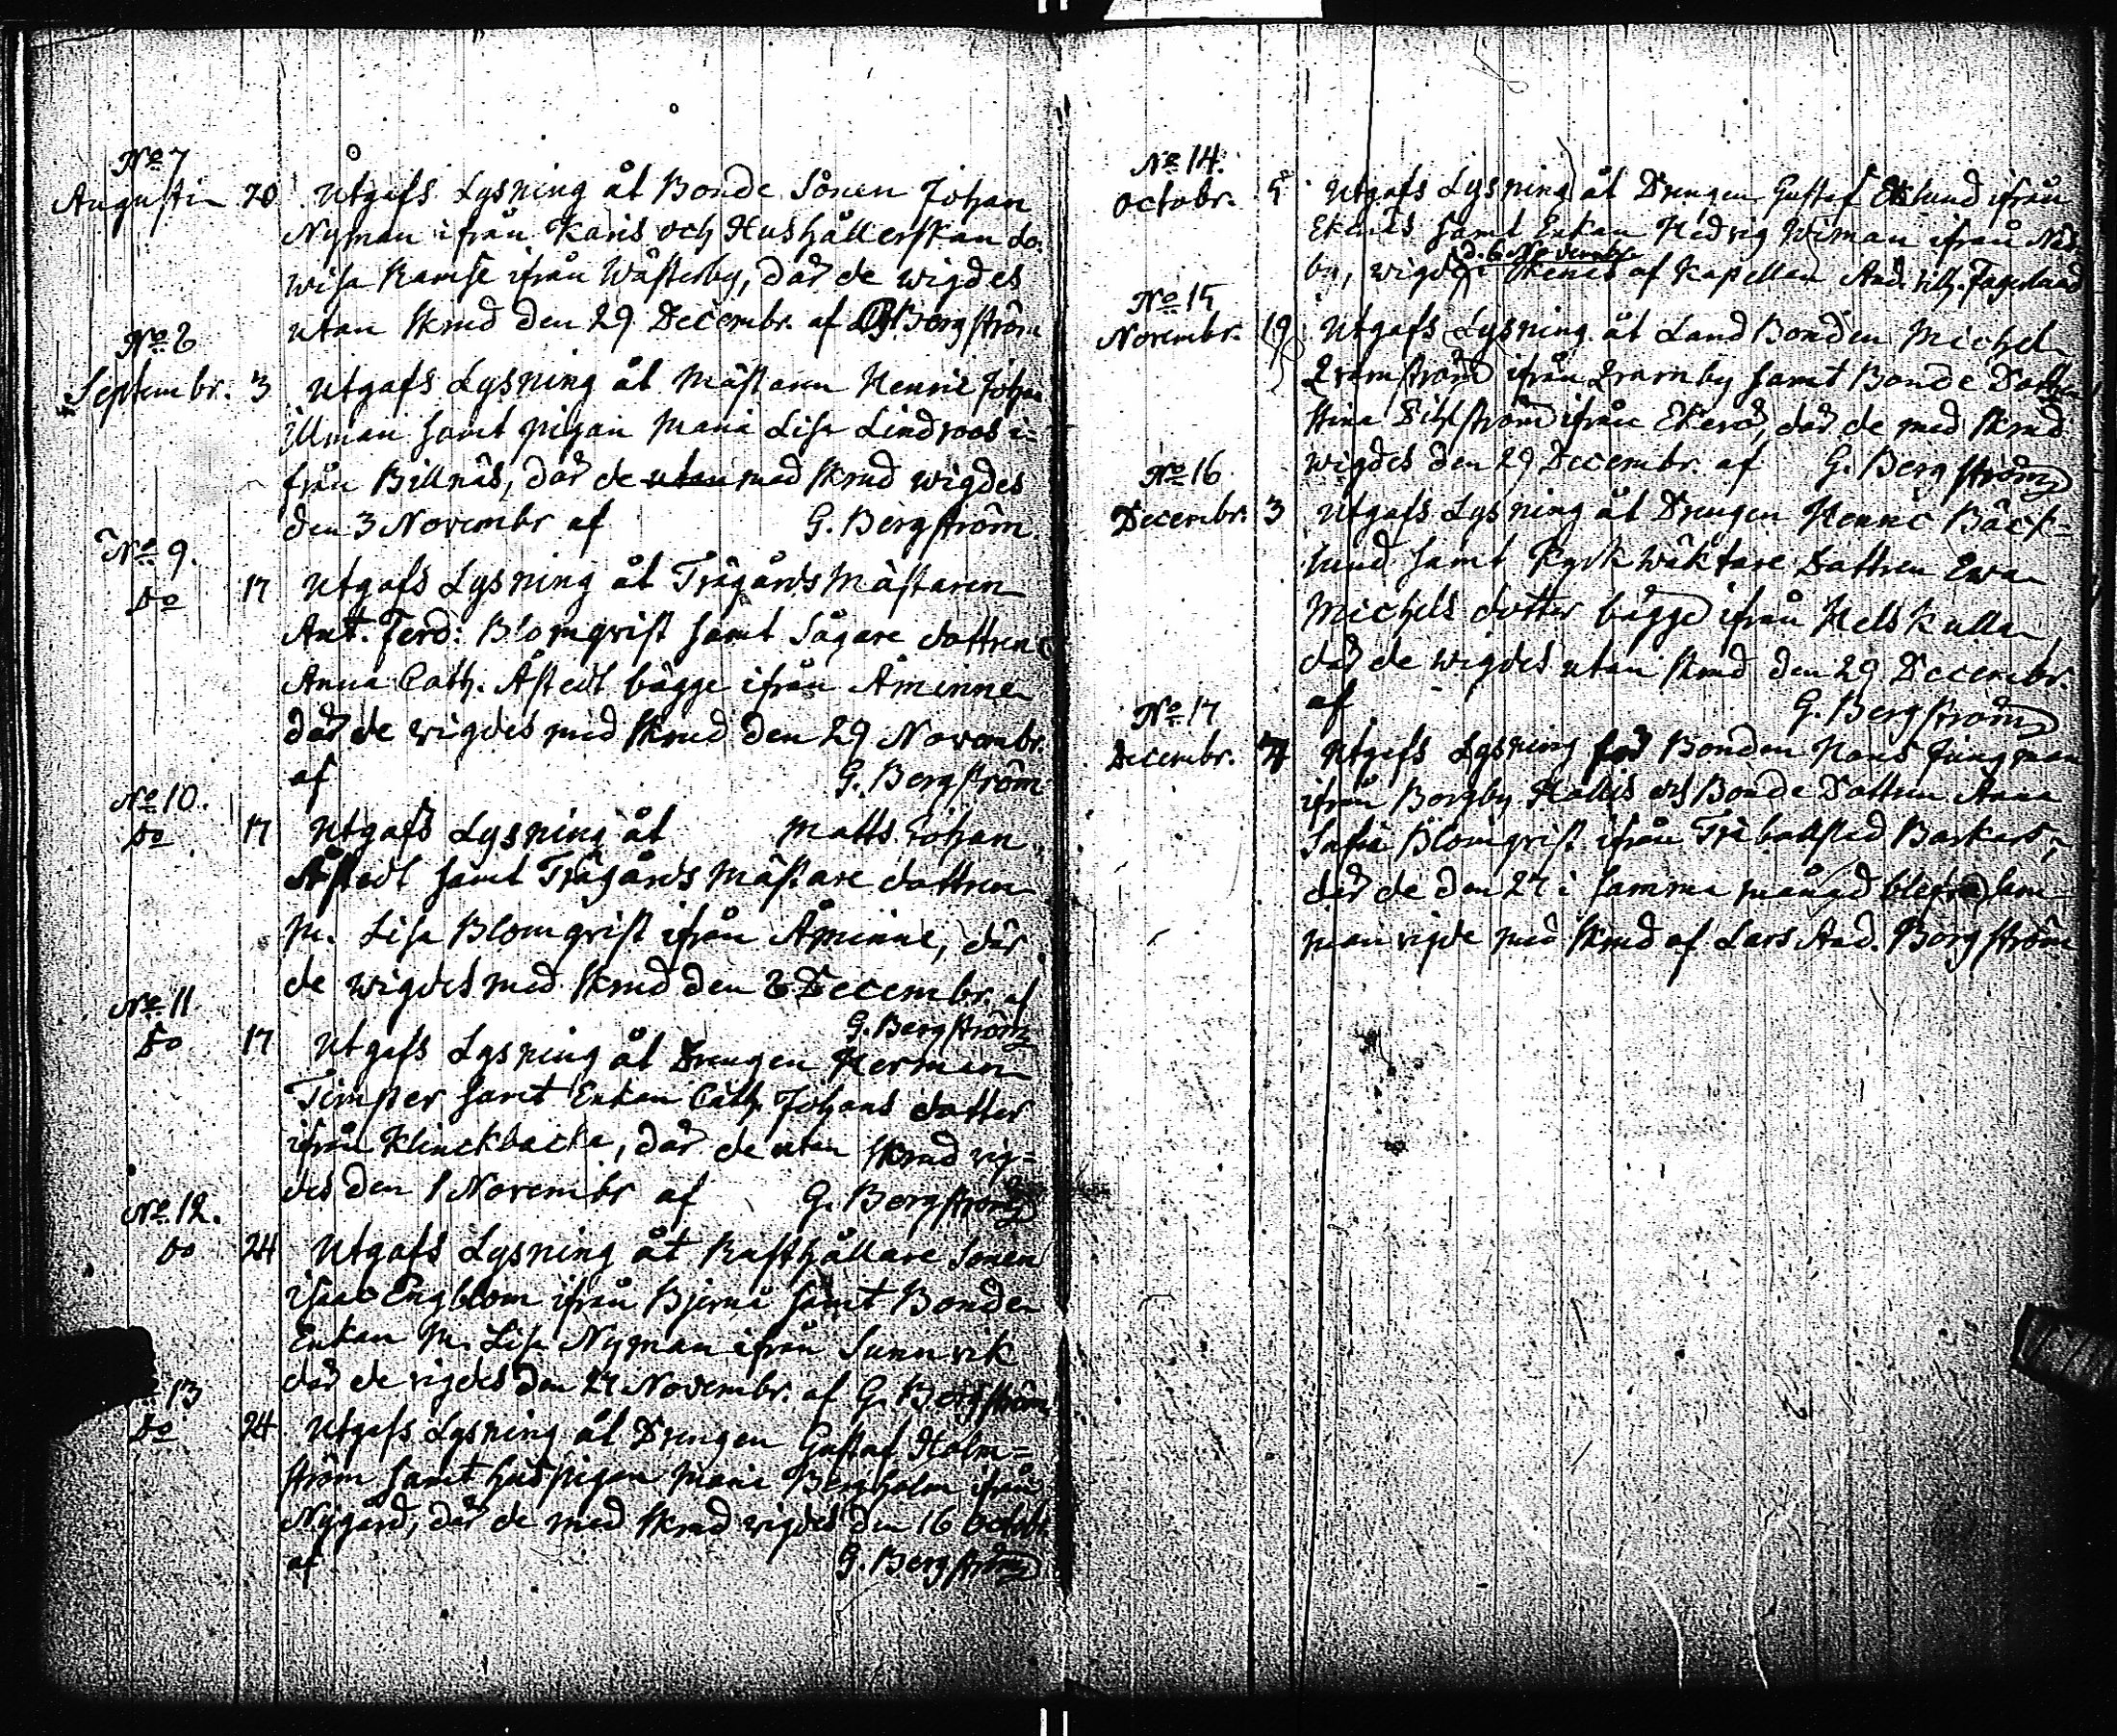 No 7
Augusti 20 Utgafs Lysning åt Bonde Sonen Johan
Nyman ifrån Karis och Hushållerskan Lo-
wisa Ramse ifrån Wästerby, där de wigdes
utan skrud den 29 Decembr. af G. Bergström
No 8
Septembr. 3 Utgafs Lysning åt Mästaren Henric Johan
Ulman samt pigan Maria Lisa Lindroos i-
från Billnäs, där de utan med skrud wigdes
den 3 Novembr af G. Bergström
No 9.
Do 17 Utgafs Lysning åt Trägårds Mästaren
Ant. Ferd: Blomqvist samt Sågare dottren
Anna Cath. Åstedt bägge ifrån Åminne
där de wigdes med skrud den 29 Novembr.
af G. Bergström
No 10.
Do 17 Utgafs Lysning åt Matts Johan
Åstedt samt Trägårds Mästare dottren
M. Lisa Blomqvist ifrån Åminne, där
de wigdes med skrud den 8 Decembr. af
G. Bergström
No 11
Do 17 Utgafs Lysning åt Drengen Herman
Timster samt Enkan Cath. Johans dotter
ifrån Klinckbacka, där de utan skrud vig-
des den 1 Novembr af G. Bergström
No 12.
Do 24 Utgafs Lysning åt Rusthållare Sonen
Isaac Engblom ifrån Bjerno samt Bonden
Enkan M. Lisa Nyman ifrån Sunnvik
där de vigdes den 27 Novembr. af G. Bergström
13
Do 24 Utgafs Lysning åt Drengen Gustaf Holm-
ström samt huspigan Maria Bergholm ifrån
Nygård, där de med skrud vigdes den 16 Octobr
af G. Bergström
No 14.
Octobr. 5 Utgafs Lysning åt Drengen Gustaf Eklund ifrån
Ekenäs samt Enkan Hedvig Wiman ifrån
by, wigde i Ekenäs d. 6 Novembr. af Kapellan And. Fagerlund
No 15
Novembr. 19 Utgafs Lysning åt Land Bonden Michel
Qvarnström ifrån Qvarnby samt Bonde Dottren
Stina ifrån Ekerö, där de med skrud
wigdes den 29 Decembr. af G. Bergström
No 16
Decembr. 3 Utgafs Lysning åt Drengen Henric Bäck-
lund samt Kyrkwäktare Dottren Ewa
Michels dotter bägge ifrån Kullan
där de wigdes utan skrud den 29 Decembr.
af G. Bergström
No 17
Decembr. Utgafs Lysning för Bonden Hans Jungman
ifrån Borgby Hallis och Bonde Dottren Anna
Safia Blomqvist ifrån Träbollstad,
där de den 27 i samma månad blefvo sam-
manvigde med skrud af Lars And. Bergström